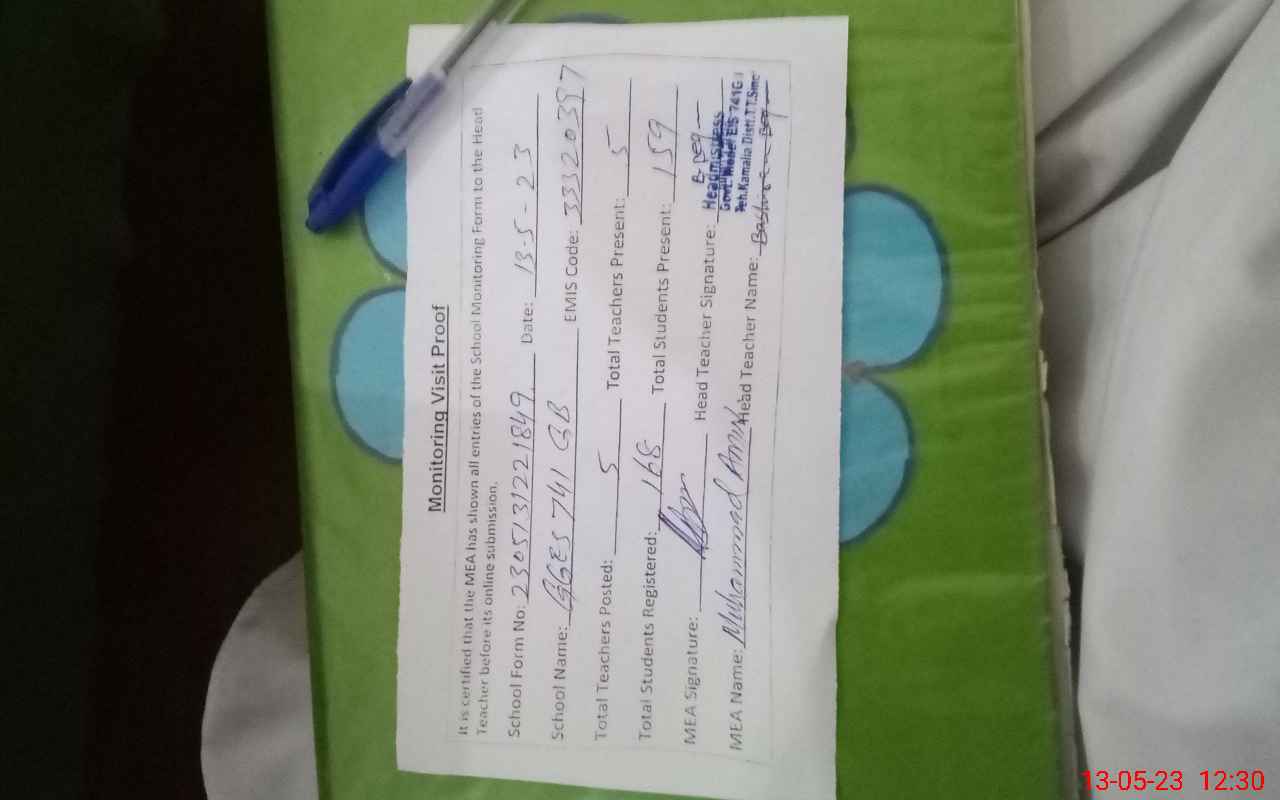 Monitoring Visit Proof
It is certified that the MEA has shown all entries of the School Monitoring Form to the Head
Teacher before its online submission.
School Form No: 2305131221849 Date: 13-5-23
School Name: GGES 741 GB EMIS Code: 33320397
Total Teachers Posted: 5 Total Teachers Present: 5
Total Students Registered: 168 Total Students Present: 159
MEA Signature: Head Teacher Signature:
Headmistress
Govt. Model E/S 741G
Teh.Kamalia Distt.T.T.Singh
MEA Name: Muhammad Amin Head Teacher Name:
13-05-23 12:30